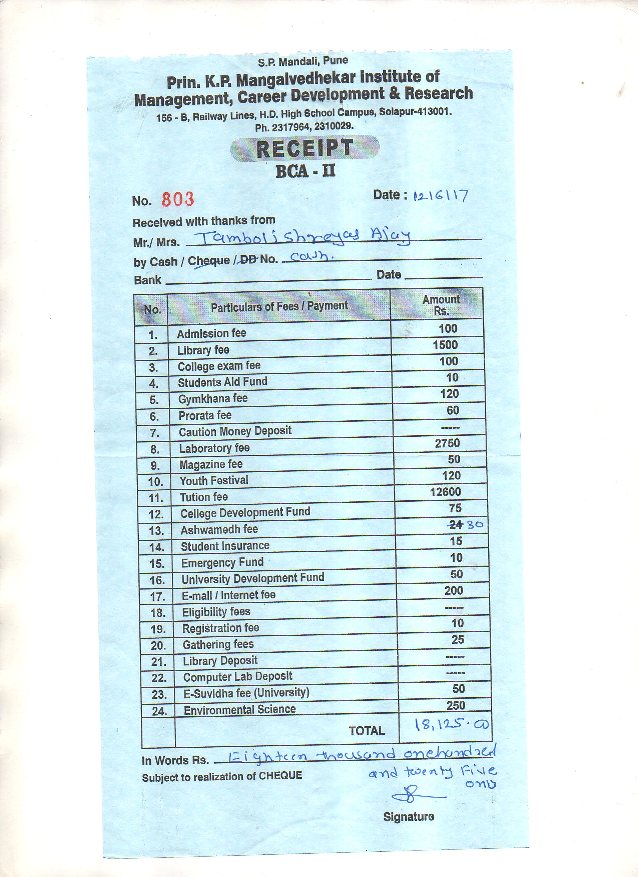 S.P. Mandali, Pune
Prin. K.P. Mangalvedhekar Institute of
Management, Career Development & Research
156 - B, Railway Lines, H.D. High School Campus, Solapur-413001.
Ph. 2317964, 2310029.
RECEIPT
BCA - II
No. 803 Date : 12/6/17
Received with thanks from
Mr./ Mrs. Tamboli Shreyas Ajay
by Cash / Cheque / DD No. cash.
Bank Date
No. Particulars of Fees / Payment Amount Rs.
1. Admission fee 100
2. Library fee 1500
3. College exam fee 100
4. Students Aid Fund 10
5. Gymkhana fee 120
6. Prorata fee 60
7. Caution Money Deposit -----
8. Laboratory fee 2750
9. Magazine fee 50
10. Youth Festival 120
11. Tution fee 12600
12. College Development Fund 75
13. Ashwamedh fee 24 30
14. Student Insurance 15
15. Emergency Fund 10
16. University Development Fund 50
17. E-mail / Internet fee 200
18. Eligibility fees -----
19. Registration fee 10
20. Gathering fees 25
21. Library Deposit -----
22. Computer Lab Deposit -----
23. E-Suvidha fee (University) 50
24. Environmental Science 250
TOTAL 18,125.00
In Words Rs. Eighteen thousand onehundred
Subject to realization of CHEQUE and twenty Five
only
Signature